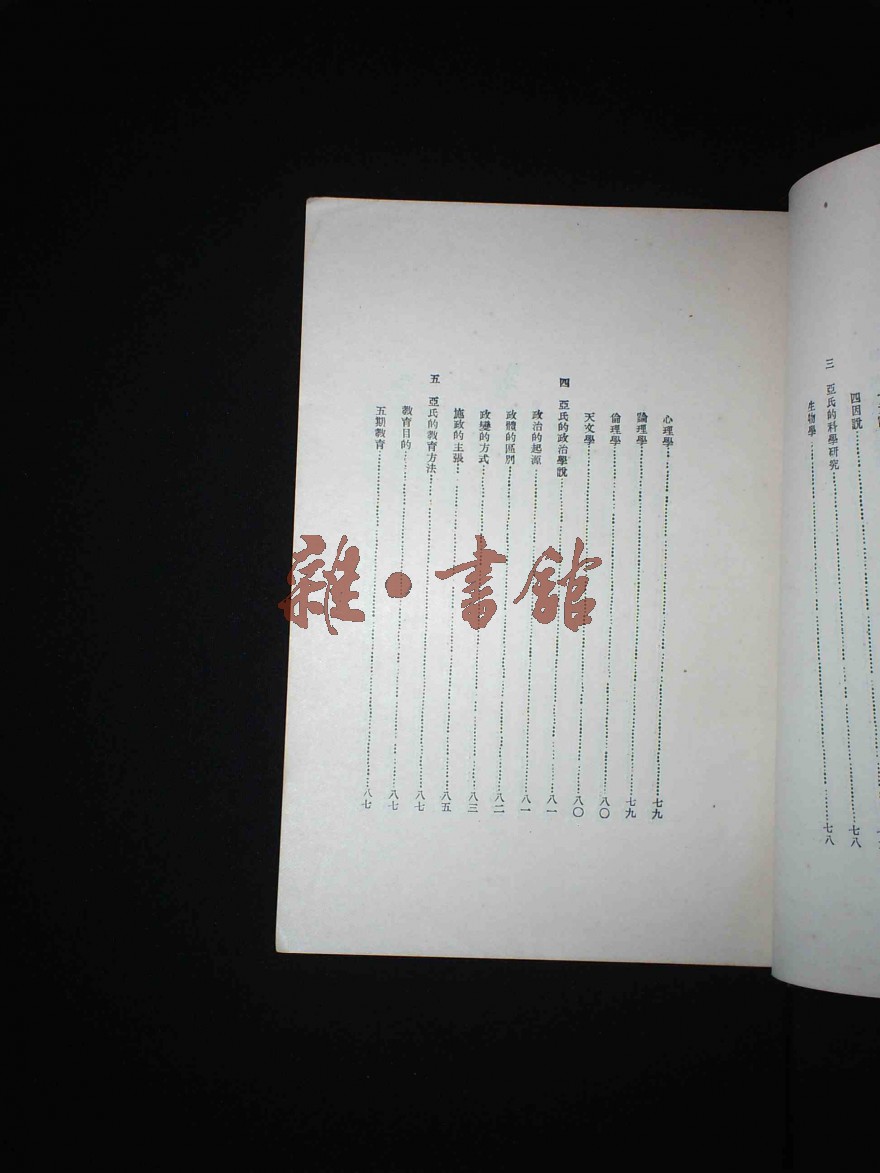 四因說
三 亞氏的科學研究……七八
生物學……七八
心理學……七九
論理學……七九
倫理學……八〇
天文學……八〇
四 亞氏的政治學說……八一
政治的起源……八一
政體的區別……八二
政變的方式……八三
施政的主張……八五
五 亞氏的教育方法……八七
教育目的……八七
五期教育……八七
雜·書館